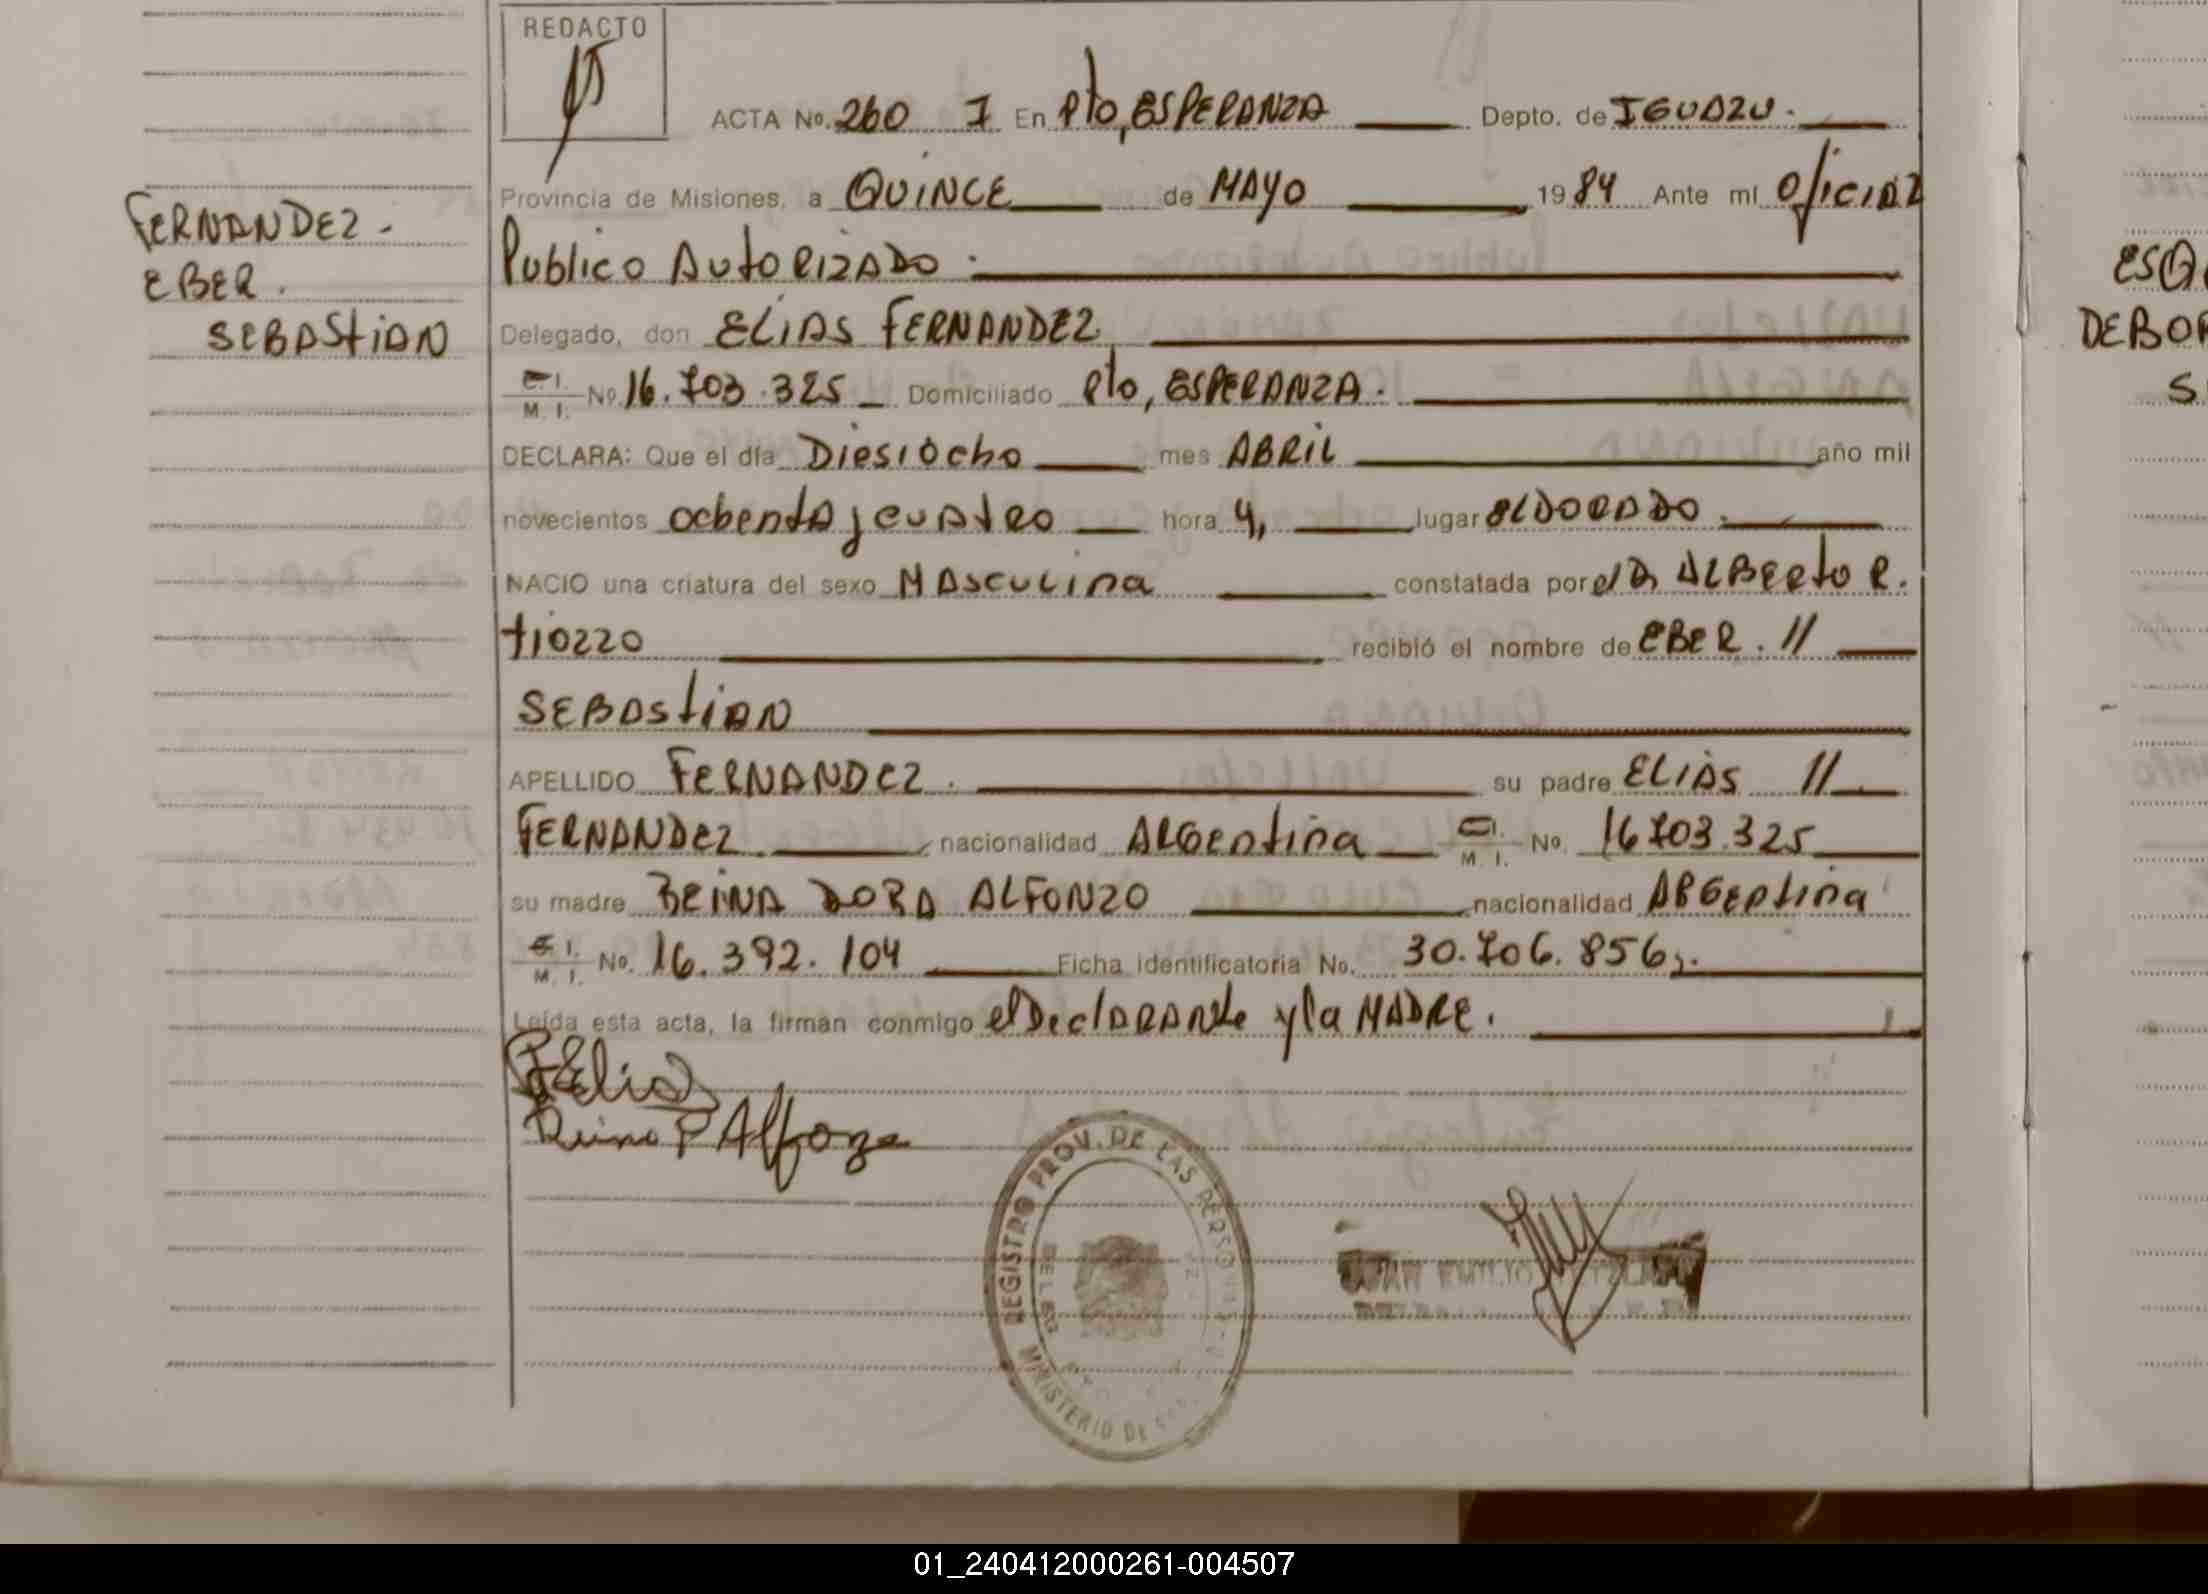 REDACTO
ACTA No. 260 I En Pto, ESPERANZA Depto. de IGUAZU.
Provincia de Misiones, a QUINCE de MAYO 1984 Ante mi Oficial
Publico AutoRizADo.
FERNANDEZ.
EBER.
SEBAStiAN
Delegado, don ELIAS FERNANDEZ
C. I. M. I. No. 16.703.325 Domiciliado Pto, ESPERANZA.
DECLARA: Que el día DiesiOcho mes ABRIL año mil
novecientos ochentA y cuAtRo hora 4, lugar ELDORADO.
NACIO una criatura del sexo MAsculina constatada por el Dr ALBERto R.
tiozzo recibió el nombre de EBER. //
SEBAStiAN
APELLIDO FERNANDEZ. su padre ELIAS //
FERNANDEZ nacionalidad ARGentina C. I. M. I. No. 16703.325
su madre REINA DORA ALFONZO nacionalidad ARGentina
C. I. M. I. No. 16.392.104 Ficha identificatoria No. 30.706.856,.
Leída esta acta, la firman conmigo el DeclARANte y la MADRE.
F Elias
Reina Alfonzo
REGISTRO PROV. DE LAS PERSONAS
MINISTERIO DE
JUAN EMILIO
ESQ
DEBOR
S
01_240412000261-004507